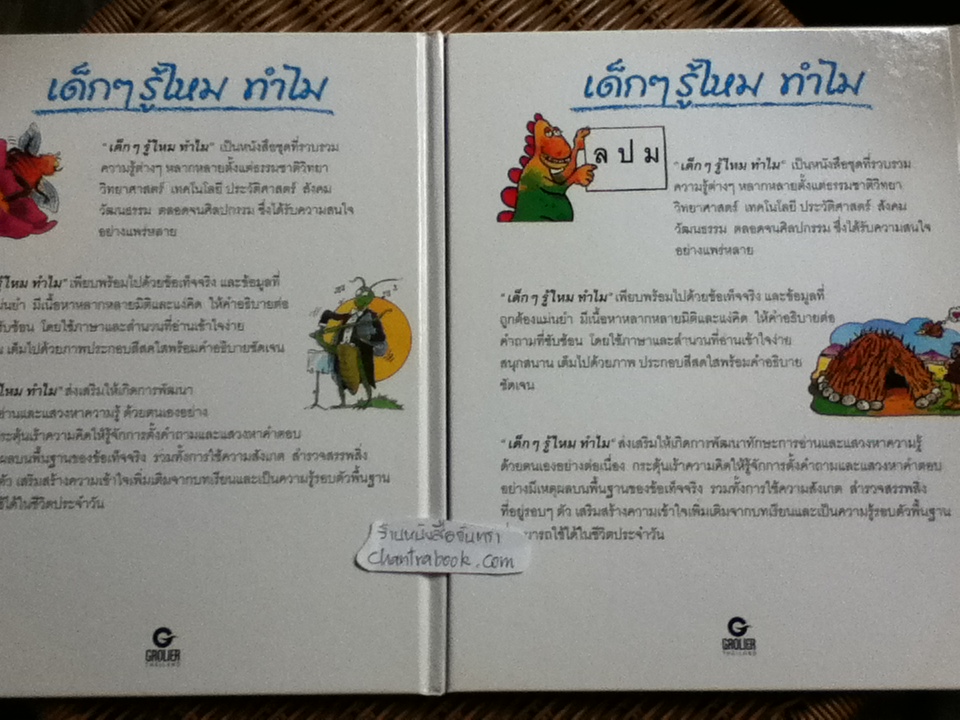 เด็กๆ รู้ไหม ทำไม
"เด็กๆ รู้ไหม ทำไม" เป็นหนังสือชุดที่รวบรวม
ความรู้ต่างๆ หลากหลายตั้งแต่ธรรมชาติวิทยา
วิทยาศาสตร์ เทคโนโลยี ประวัติศาสตร์ สังคม
วัฒนธรรม ตลอดจนศิลปกรรม ซึ่งได้รับความสนใจ
อย่างแพร่หลาย
ไหม ทำไม" เพียบพร้อมไปด้วยข้อเท็จจริง และข้อมูลที่
มีเนื้อหาหลากหลายมิติและแง่คิด ให้คำอธิบายต่อ
โดยใช้ภาษาและสำนวนที่อ่านเข้าใจง่าย
เต็มไปด้วยภาพประกอบสีสดใสพร้อมคำอธิบายชัดเจน
ไหม ทำไม" ส่งเสริมให้เกิดการพัฒนา
อ่านและแสวงหาความรู้ ด้วยตนเองอย่าง
กระตุ้นเร้าความคิดให้รู้จักการตั้งคำถามและแสวงหาคำตอบ
ผลบนพื้นฐานของข้อเท็จจริง รวมทั้งการใช้ความสังเกต สำรวจสรรพสิ่ง
ตัว เสริมสร้างความเข้าใจเพิ่มเติมจากบทเรียนและเป็นความรู้รอบตัวพื้นฐาน
ใช้ได้ในชีวิตประจำวัน
GROLIER
THAILAND
เด็กๆ รู้ไหม ทำไม
ล ป ม
"เด็กๆ รู้ไหม ทำไม" เป็นหนังสือชุดที่รวบรวม
ความรู้ต่างๆ หลากหลายตั้งแต่ธรรมชาติวิทยา
วิทยาศาสตร์ เทคโนโลยี ประวัติศาสตร์ สังคม
วัฒนธรรม ตลอดจนศิลปกรรม ซึ่งได้รับความสนใจ
อย่างแพร่หลาย
"เด็กๆ รู้ไหม ทำไม" เพียบพร้อมไปด้วยข้อเท็จจริง และข้อมูลที่
ถูกต้องแม่นยำ มีเนื้อหาหลากหลายมิติและแง่คิด ให้คำอธิบายต่อ
คำถามที่ซับซ้อน โดยใช้ภาษาและสำนวนที่อ่านเข้าใจง่าย
สนุกสนาน เต็มไปด้วยภาพ ประกอบสีสดใสพร้อมคำอธิบาย
ชัดเจน
"เด็กๆ รู้ไหม ทำไม" ส่งเสริมให้เกิดการพัฒนาทักษะการอ่านและแสวงหาความรู้
ด้วยตนเองอย่างต่อเนื่อง กระตุ้นเร้าความคิดให้รู้จักการตั้งคำถามและแสวงหาคำตอบ
อย่างมีเหตุผลบนพื้นฐานของข้อเท็จจริง รวมทั้งการใช้ความสังเกต สำรวจสรรพสิ่ง
ที่อยู่รอบๆ ตัว เสริมสร้างความเข้าใจเพิ่มเติมจากบทเรียนและเป็นความรู้รอบตัวพื้นฐาน
มารถใช้ได้ในชีวิตประจำวัน
ร้านหนังสือจันทรา
chantrabook.com
GROLIER
THAILAND